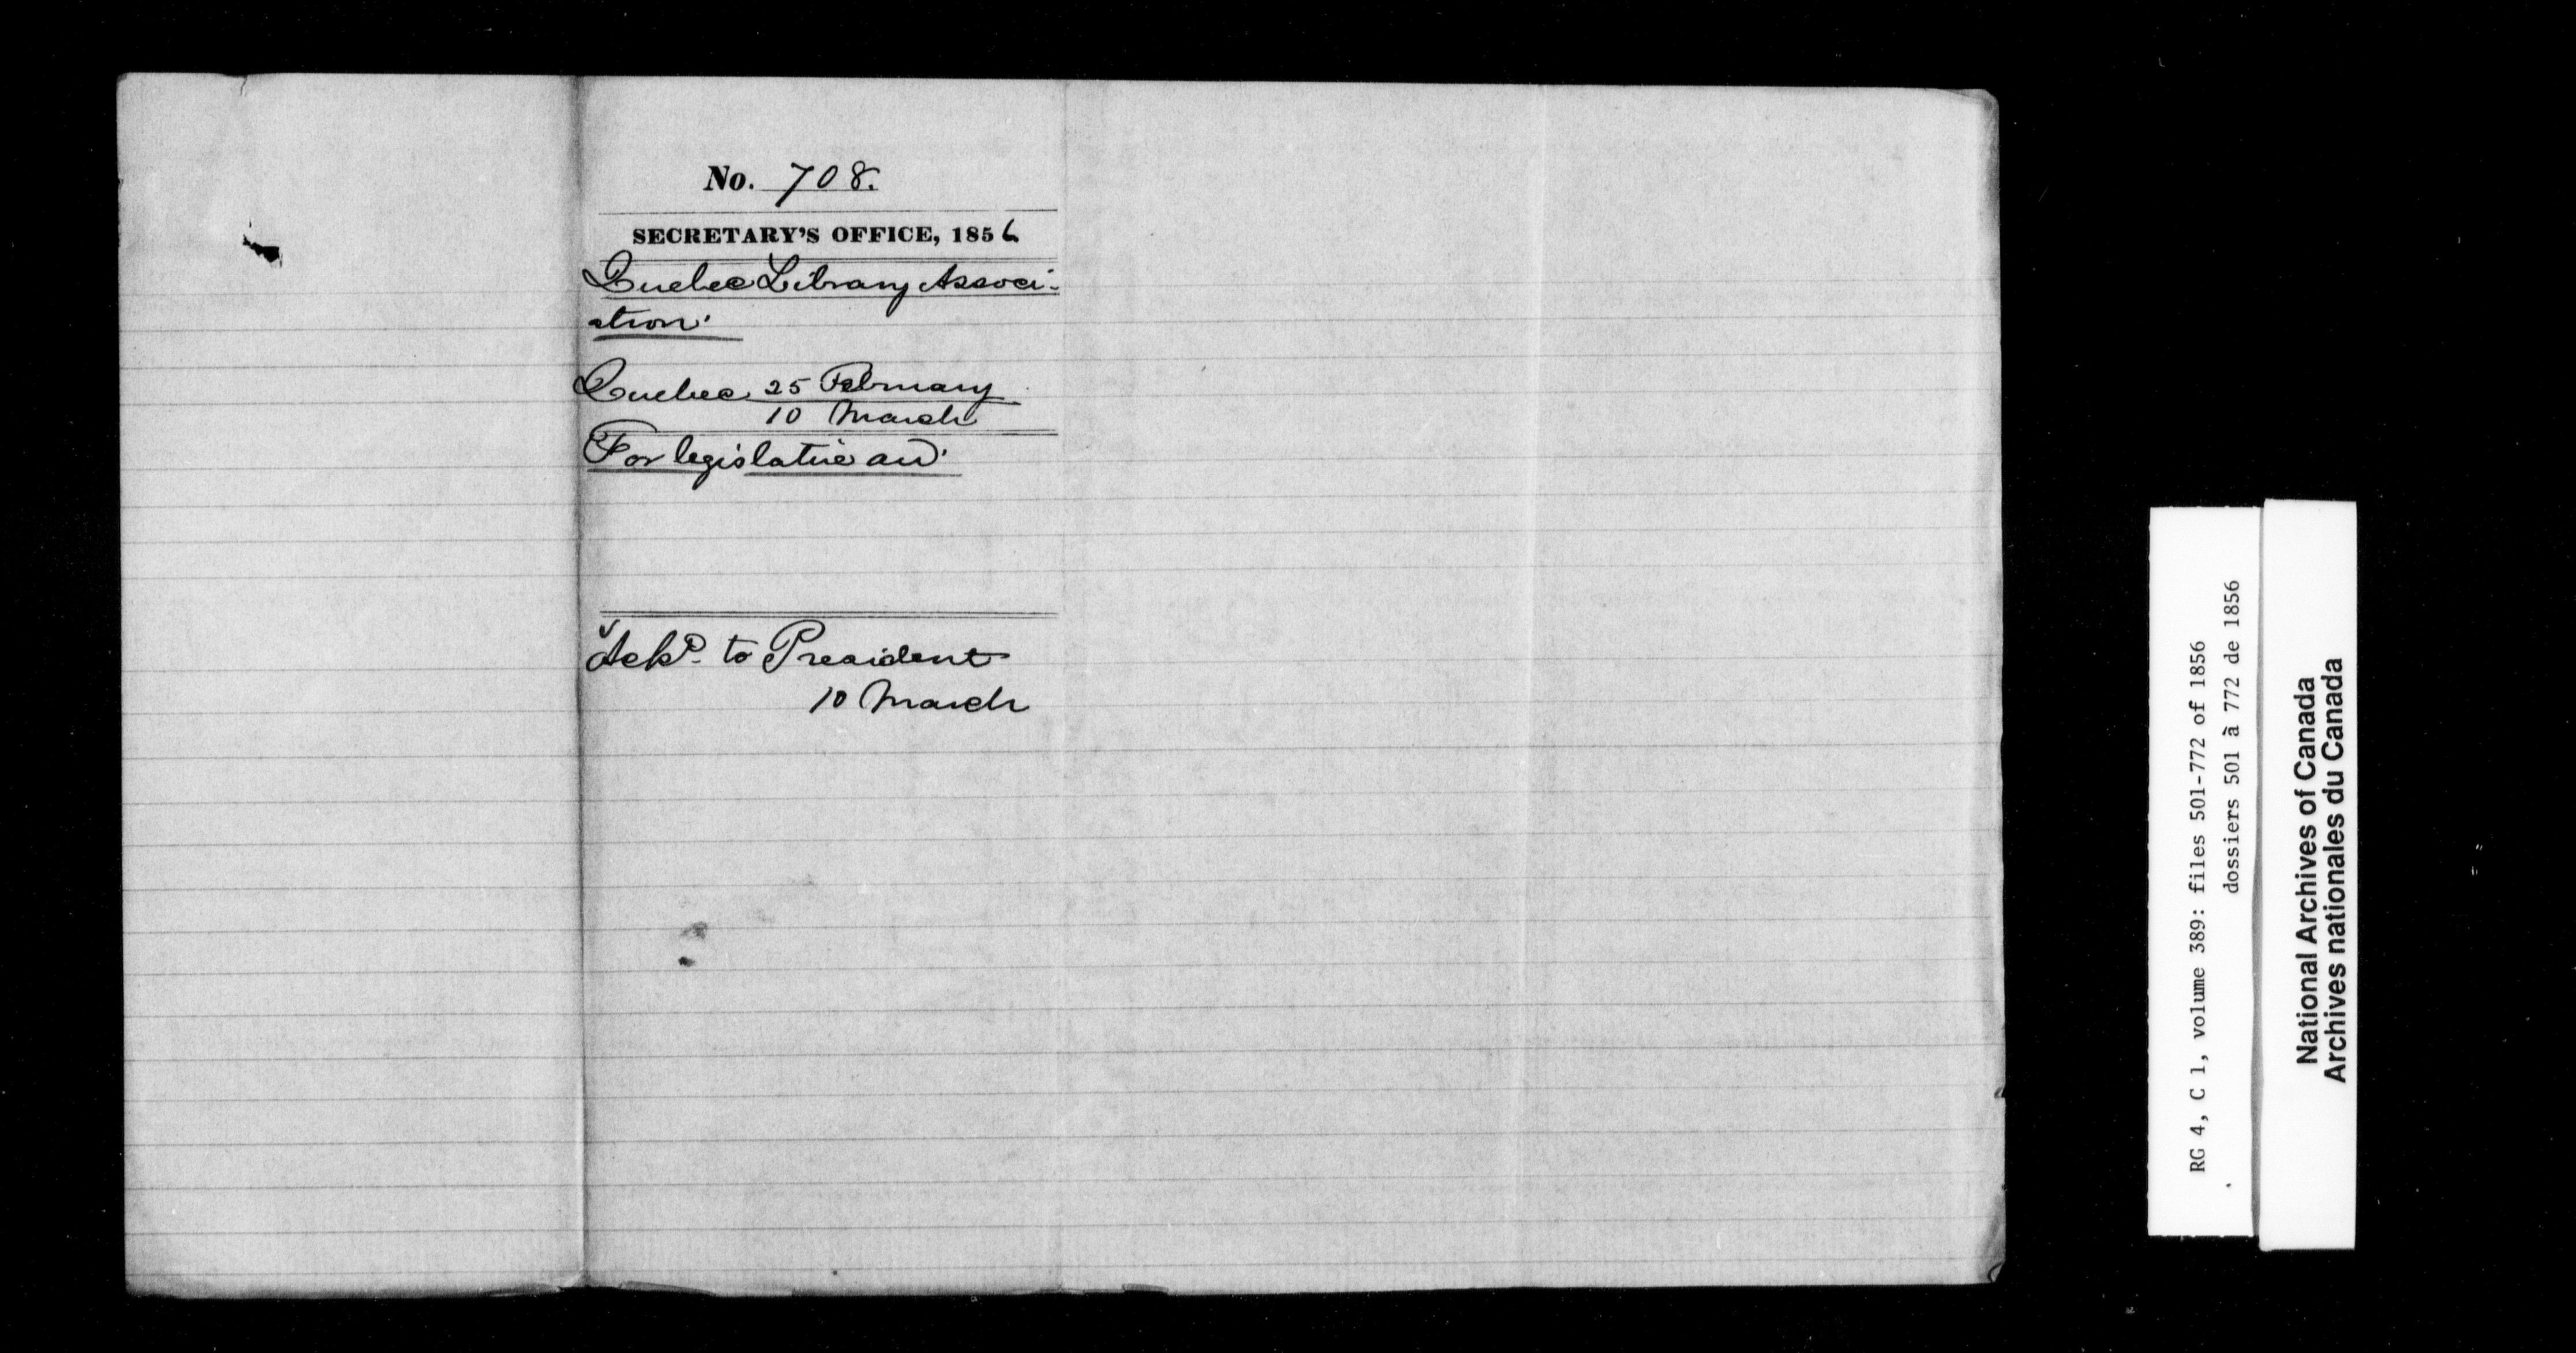 No. 708.
SECRETARY'S OFFICE, 1856
Quebec Library Associ-
ation.
Quebec 25 February
10 March
For legislative aid.
Ackd. to President
10 March
RG 4, C 1, volume 389: files 501-772 of 1856
dossiers 501 à 772 de 1856
National Archives of Canada
Archives nationales du Canada